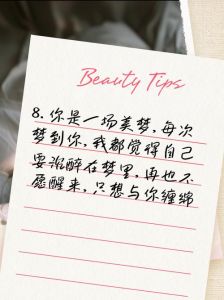 Beauty Tips
8. 你是一场美梦，每次
梦到你，我都觉得自己
要沉醉在梦里，再也不
愿醒来，只想与你缠绵